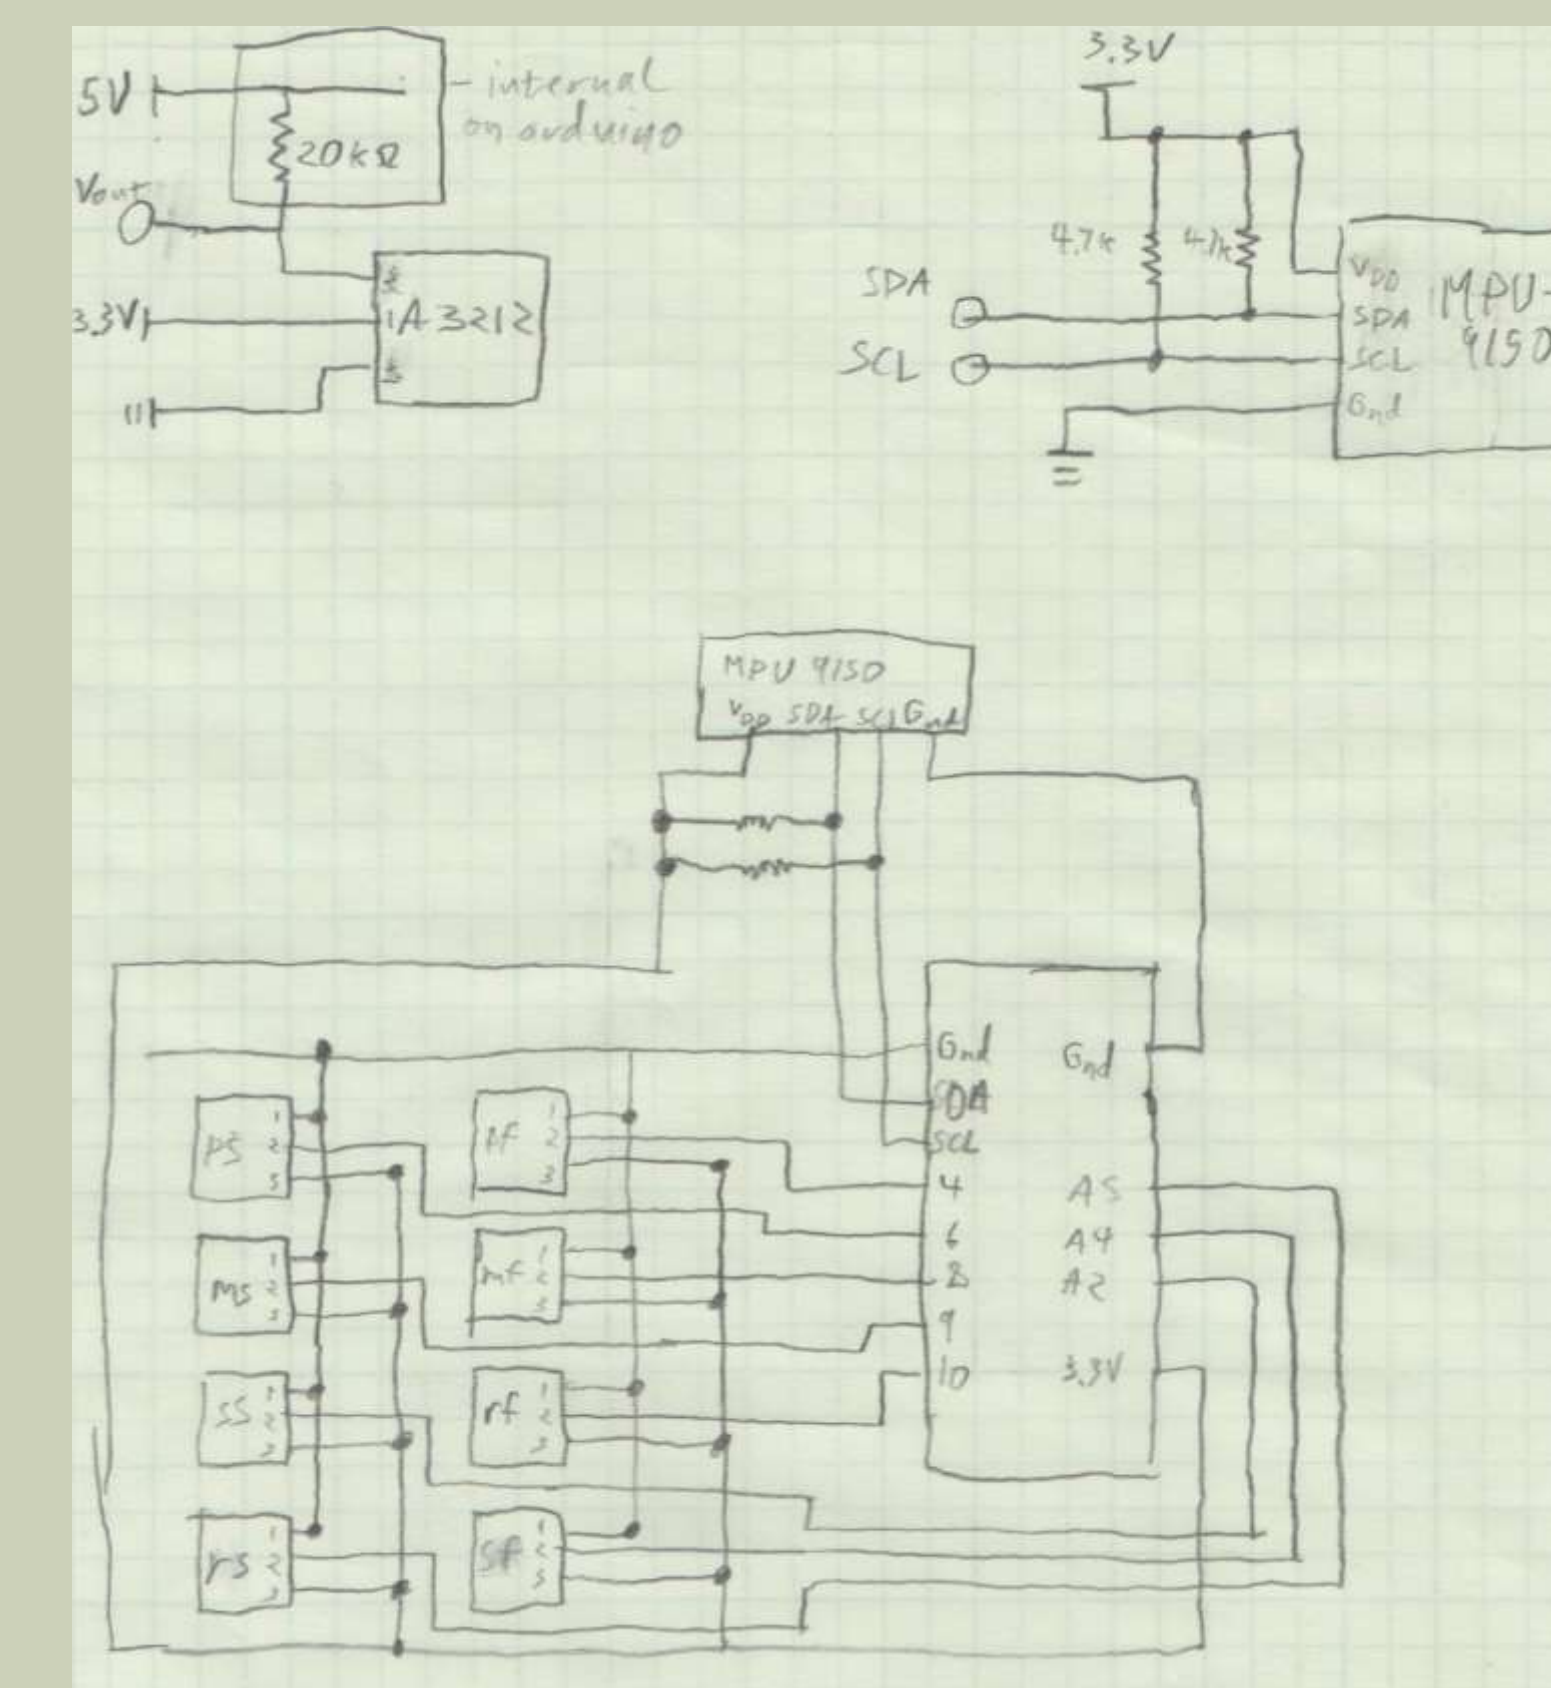 5V
- internal
on arduino
20kΩ
Vout
3.3V
A3212
3.3V
4.7k
4.7k
SDA
SCL
VDD
SDA
SCL
Gnd
MPU-
9150
MPU 9150
VDD SDA SCL Gnd
Gnd
SDA
SCL
4
6
8
9
10
Gnd
A5
A4
A2
3.3V
ps
1
2
3
pf
1
2
3
ms
1
2
3
mf
1
2
3
ss
1
2
3
rf
1
2
3
rs
1
2
3
sf
1
2
3